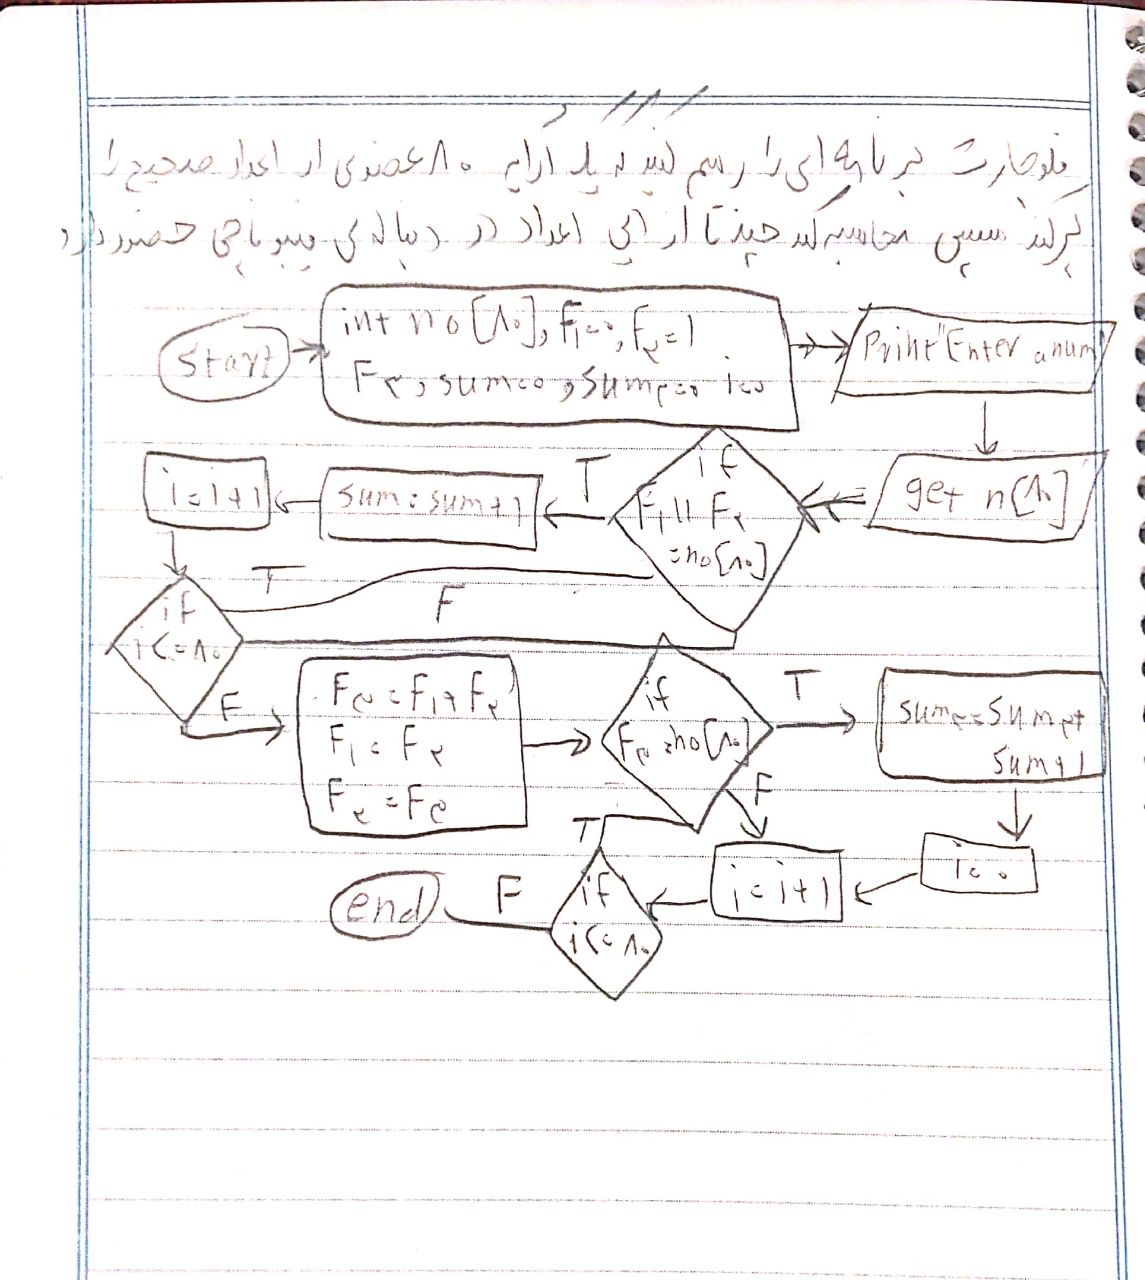 فلوچارت برنامه ای را رسم کنید که یک آرایه ۸۰ عضوی از اعداد صحیح را
پر کند سپس محاسبه کند چند تا از این اعداد در دنباله ی فیبوناچی حضور دارد
start
int no[۸۰], F۱=۰, F۲=1
F۳, sum=۰, sum۲=۰ i=۰
Print "Enter a num"
get n[۸۰]
if
F۱ || F۲
=no[۸۰]
T
sum=sum+1
i=i+1
T
F
if
i<=۸۰
F
F۳=F۱+F۲
F۱=F۲
F۲=F۳
if
F۳=no[۸۰]
T
sum۲=sum۲+
sum+1
F
T
i=۰
i=i+1
if
i<=۸۰
F
end